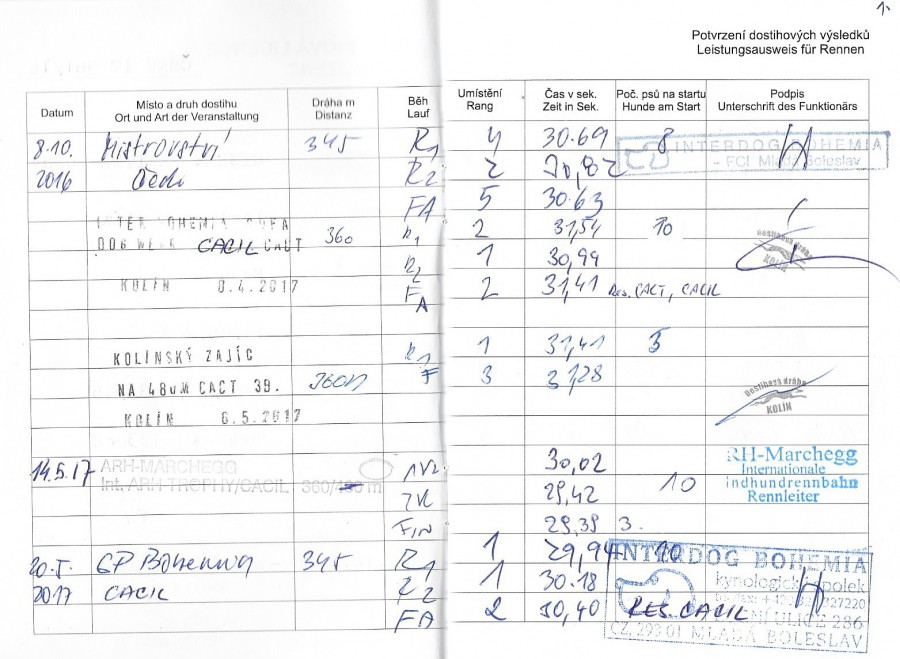 1.
Potvrzení dostihových výsledků
Leistungsausweis für Rennen
Datum Místo a druh dostihu Dráha m Běh Umístění Čas v sek. Poč. psů na startu Podpis
Ort und Art der Veranstaltung Distanz Lauf Rang Zeit in Sek. Hunde am Start Unterschrift des Funktionärs
8.10. Mistrovství 345 R1 4 30.69 8 INTERDOG BOHEMIA
2016 R2 2 30,82 - FCI Mladá Boleslav
FA 5 30.63
DOG CACIL CACT 360 R1 2 31,54 10 Dostihová dráha
R2 1 30,99 KOLÍN
KOLÍN 8.4.2017 FA 2 31,41 Res. CACT, CACIL
KOLÍNSKÝ ZAJÍC R1 1 31,41 5
NA 480M CACT 39. 360m F 3 31,28 Dostihová dráha
KOLÍN 6.5.2017 KOLÍN
14.5.17 ARH-MARCHEGG 1VL 30,02 RH-Marchegg
Int. ARH TROPHY/CACIL 360/480 m 29,42 10 Internationale
indhundrennbahn
FIN 29,39 3. Rennleiter
20.5. GP Bohemia 345 R1 1 29,94 10 INTERDOG BOHEMIA
2017 CACIL R2 1 30.18 kynologický spolek
FA 2 30,40 RES. CACIL ULICE 286
CZ, 293 01 MLADÁ BOLESLAV